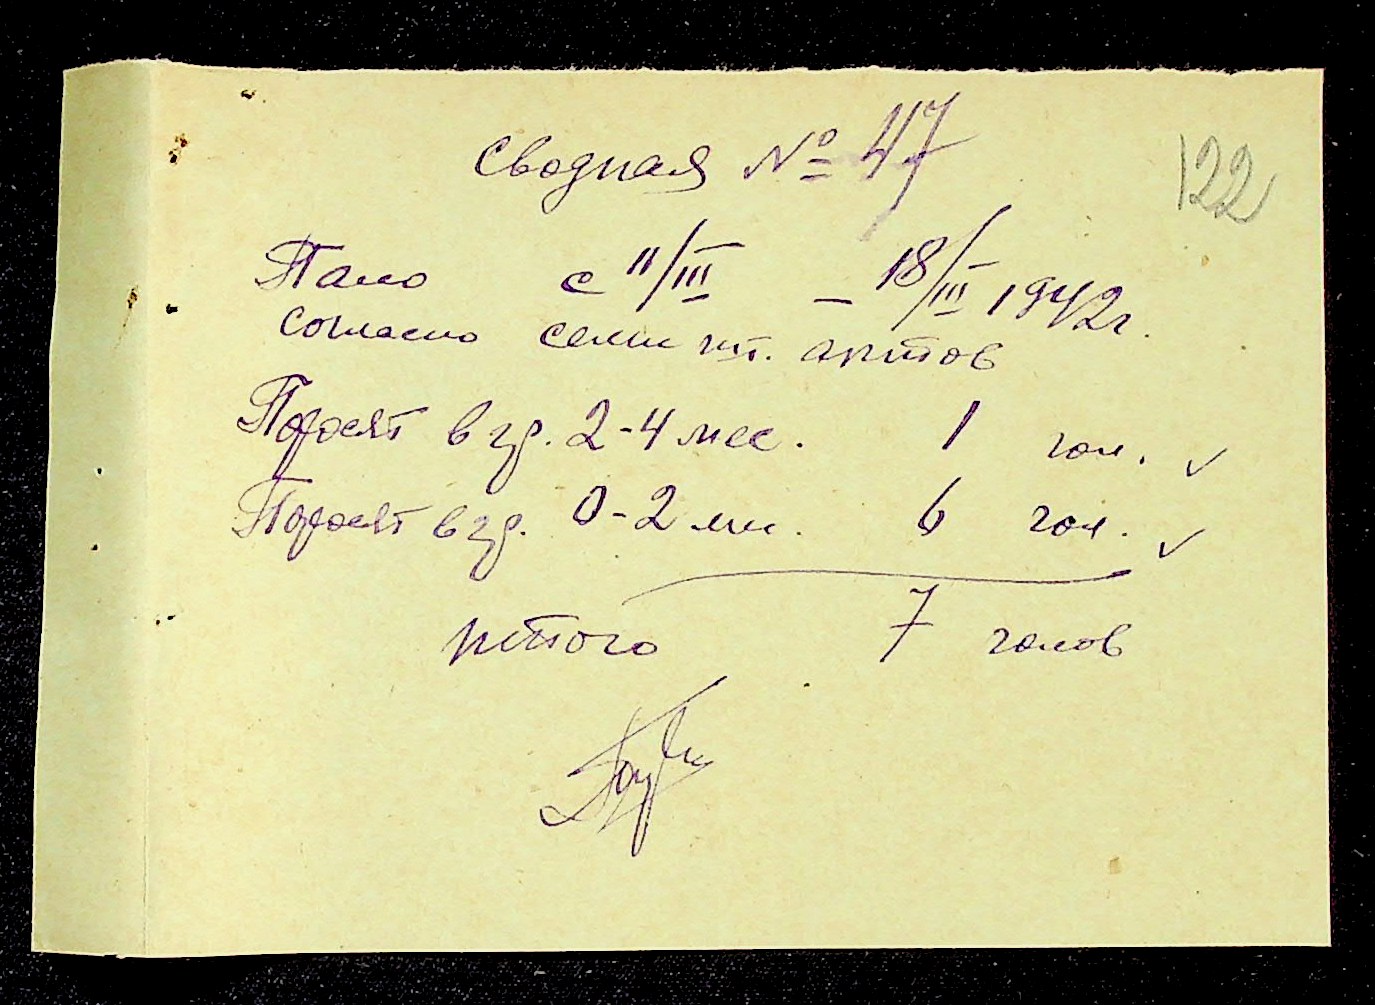 Сводная № 47
122
Пало с 11/III – 18/III 1942г.
согласно семи шт. актов
Поросят взр. 2-4 мес. 1 гол. ✓
Поросят взр. 0-2 мес. 6 гол. ✓
Итого 7 голов